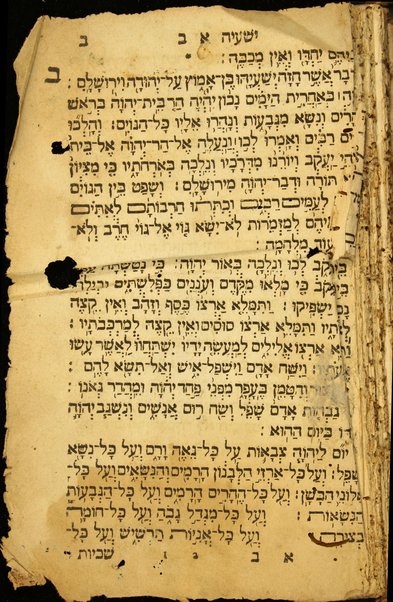 ישעיה א ב ב
יהם יחדו ואין מכבה:
ב
דבר אשר חזה ישעיהו בן־אמוץ על־יהודה וירושלם:
והיה באחרית הימים נכון יהיה הר בית־יהוה בראש
הרים ונשא מגבעות ונהרו אליו כל־הגוים: והלכו
עמים רבים ואמרו לכו ונעלה אל־הר־יהוה אל־בית
אלהי יעקב וירנו מדרכיו ונלכה בארחתיו כי מציון
תצא תורה ודבר־יהוה מירושלם: ושפט בין הגוים
לעמים רבים וכתתו חרבותם לאתים
תיהם למזמרות לא־ישא גוי אל־גוי חרב ולא־
עוד מלחמה:
יעקב לכו ונלכה באור יהוה: כי נטשתה
יעקב כי מלאו מקדם ועננים כפלשתים ובילדי
נכרים ישפיקו: ותמלא ארצו כסף וזהב ואין קצה
לאצרתיו ותמלא ארצו סוסים ואין קצה למרכבתיו:
ותמלא ארצו אלילים למעשה ידיו ישתחוו לאשר עשו
וישח אדם וישפל־איש ואל־תשא להם:
בצור והטמן בעפר מפני פחד יהוה ומהדר גאנו:
גבהות אדם שפל ושח רום אנשים ונשגב יהוה
לבדו ביום ההוא:
יום ליהוה צבאות על כל־גאה ורם ועל כל־נשא
ושפל: ועל כל־ארזי הלבנון הרמים והנשאים ועל כל־
אלוני הבשן: ועל כל־ההרים הרמים ועל כל־הגבעות
הנשאות: ועל כל־מגדל גבה ועל כל־חומה
בצורה: ועל כל־אניות תרשיש ועל כל־
א ב שכיות